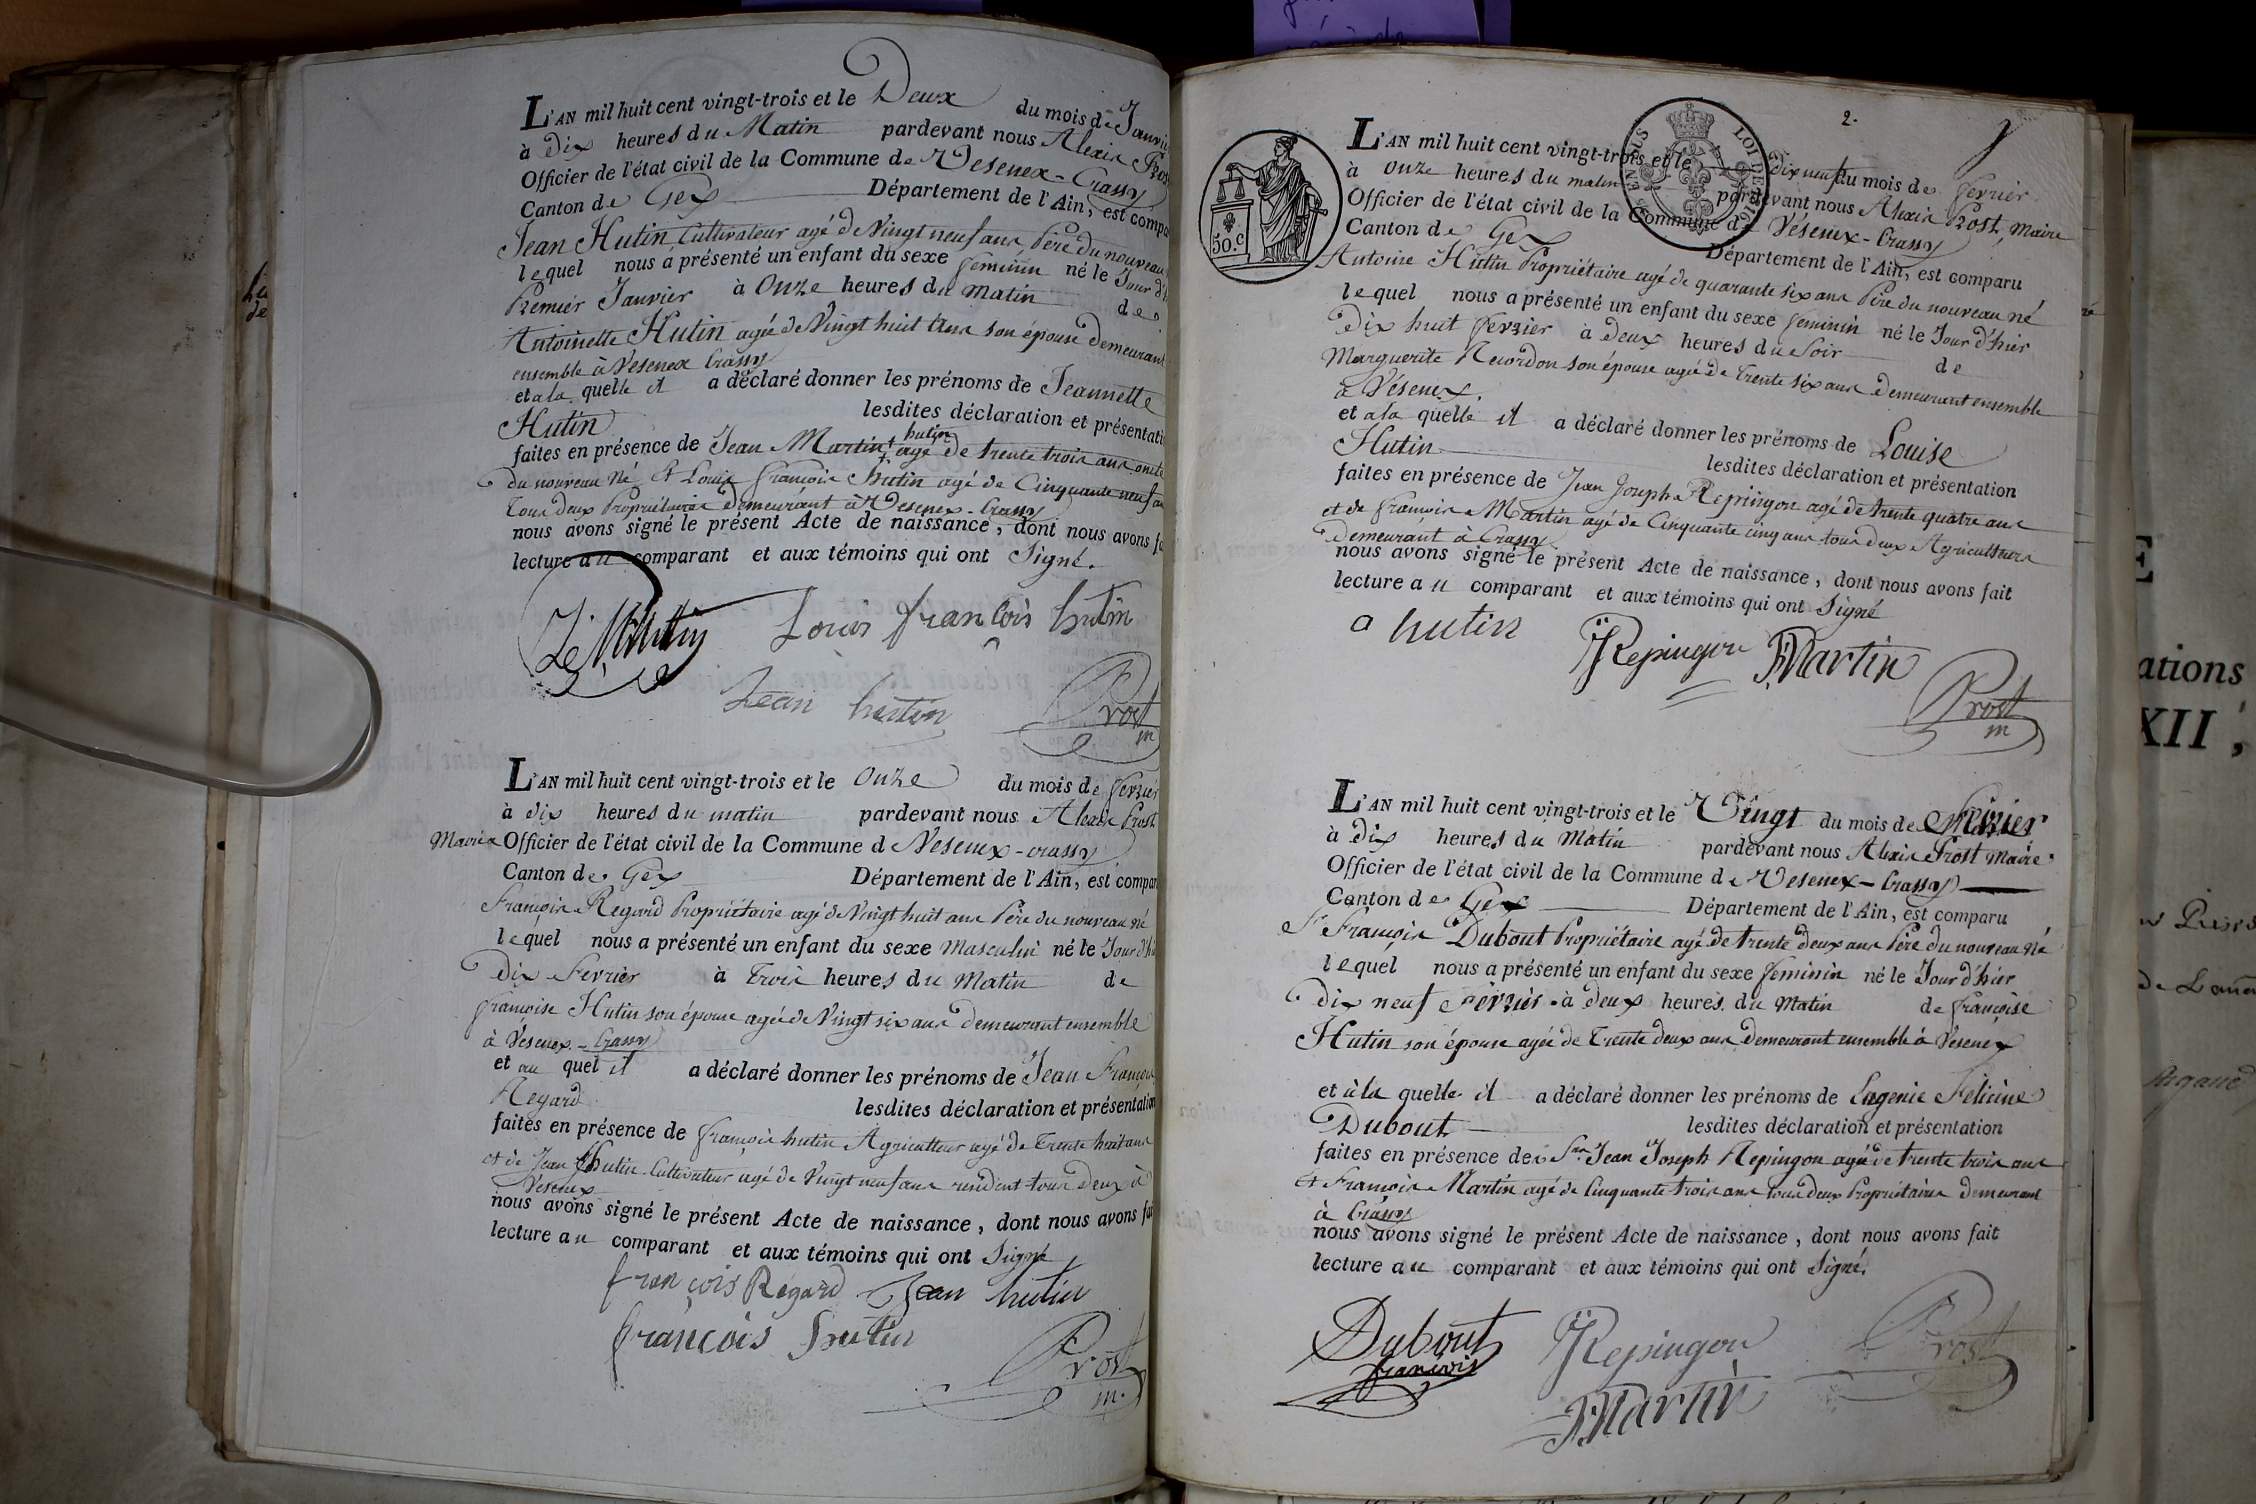 L'AN mil huit cent vingt-trois et le Deux du mois de Janvie
à Dix heures du Matin pardevant nous Alexis Pros
Officier de l'état civil de la Commune de Vesenex-Crassy
Canton de Gex Département de l'Ain, est compa
Jean Hutin Cultivateur agé de Vingt neuf ans Père du nouveau
lequel nous a présenté un enfant du sexe feminin né le Jour d'h
Premier Janvier à Onze heures du matin de
Antoinette Hutin agée de Vingt huit ans son épouse Demeurant
ensemble à Vesenex Crassy
et a la quelle il a déclaré donner les prénoms de Jeannette
Hutin lesdites déclaration et présentati
hutin
faites en présence de Jean Martin + agé de trente trois ans oncle
du nouveau Né Et Louis françois Hutin agé de Cinquante neuf an
Tous deux Propriétaires Demeurant à Vesenex-Crassy
nous avons signé le présent Acte de naissance, dont nous avons fa
lecture au comparant et aux témoins qui ont Signé.
Louis françois hutin
Jean hutin Prost
m
L'AN mil huit cent vingt-trois et le Onze du mois de fevrier
à dix heures du matin pardevant nous Alexis Prost
Maire Officier de l'état civil de la Commune d Vesenex-crassy
Canton de Gex Département de l'Ain, est compar
François Regard Propriétaire agé de Vingt huit ans Père du nouveau Né
lequel nous a présenté un enfant du sexe Masculin né le Jour d'hi
Dix Fevrier à Trois heures du Matin de
françoise Hutin son épouse agée de Vingt six ans demeurant ensemble
à Vésenex-Crassy
et au quel il a déclaré donner les prénoms de Jean François
Regard lesdites déclaration et présentation
faites en présence de françois hutin Agriculteur agé de Trente huit ans
et de Jean Hutin Cultivateur agé de Vingt neuf ans résident tous deux à
Vesenex
nous avons signé le présent Acte de naissance, dont nous avons fai
lecture au comparant et aux témoins qui ont Signé
françois Régard Jean hutin
françois hutin
Prost
m.
2.
50.C
EN SUS LOI DE 1816
L'AN mil huit cent vingt-trois et le dix neuf du mois de fevrier
à onze heures du matin pardevant nous Alexis Prost, Maire
Officier de l'état civil de la Commune de Vésenex-Crassy
Canton de Gex Département de l'Ain, est comparu
Antoine Hutin Propriétaire agé de quarante six ans Père du nouveau né
lequel nous a présenté un enfant du sexe feminin né le Jour d'hier
Dix huit fevrier à Deux heures du Soir de
Marguerite Recordon son épouse agée de Trente six ans Demeurant ensemble
à Vésenex.
et a la quelle il a déclaré donner les prénoms de Louise
Hutin lesdites déclaration et présentation
faites en présence de Jean Joseph Repingon agé de trente quatre ans
et de françois Martin agé de Cinquante cinq ans tous deux Agriculteurs
demeurant à Crassy
nous avons signé le présent Acte de naissance, dont nous avons fait
lecture au comparant et aux témoins qui ont Signé
a hutin JJRepingon fMartin
Prost
m
L'AN mil huit cent vingt-trois et le Vingt du mois de Février
à Dix heures du Matin pardevant nous Alexis Prost Maire
Officier de l'état civil de la Commune de Vesenex-Crassy
Canton de Gex Département de l'Ain, est comparu
Sr François Dubout Propriétaire agé de trente deux ans Père du nouveau Né
lequel nous a présenté un enfant du sexe feminin né le Jour d'hier
dix neuf Février à deux heures du Matin de françoise
Hutin son épouse agée de Trente deux ans Demeurant ensemble à Vesenex
et à la quelle il a déclaré donner les prénoms de Eugenie Felicine
Dubout lesdites déclaration et présentation
faites en présence des Srs Jean Joseph Repingon agé de trente trois ans
Et François Martin agé de Cinquante trois ans tous deux Propriétaires demeurant
à Crassy
nous avons signé le présent Acte de naissance, dont nous avons fait
lecture au comparant et aux témoins qui ont Signé.
Dubout JJRepingon Prost
françois
fMartin
E
ations
XII,